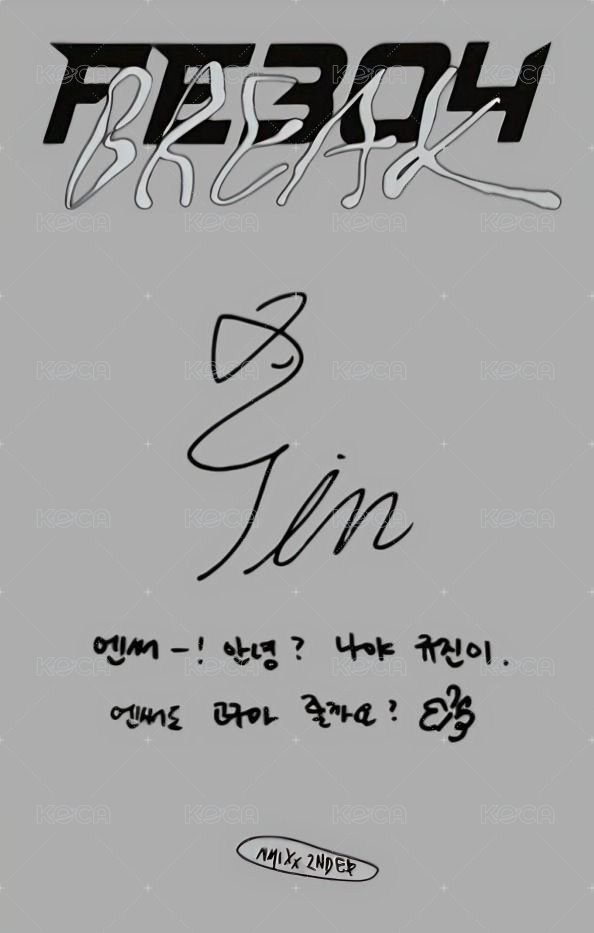 FE3O4
BREAK
Jin
엔써 -! 안녕? 나야 규진이.
엔써도 고구마 줄까요?
NMIXX 2ND EP